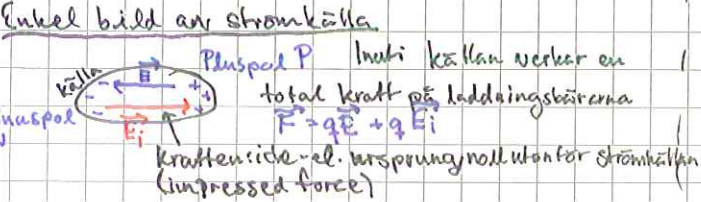 Enkel bild av strömkälla
Pluspol P Inuti källan verkar en
källa total kraft på laddningsbärarna
nuspol E F = qE + qEi
Ei
kraften: icke-el. ursprung, noll utanför strömkällan
(impressed force)